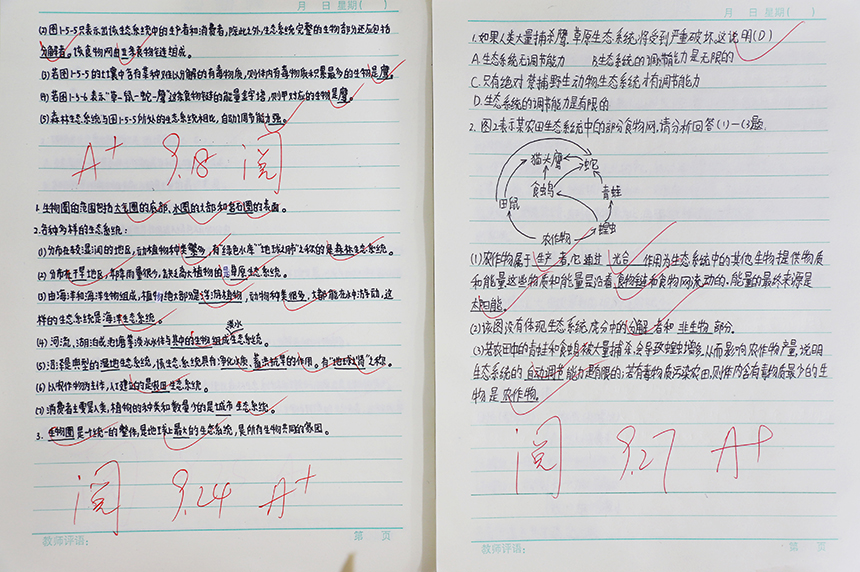 (2)图1-5-5只表示出该生态系统中的生产者和消费者,除此之外,生态系统完整的生物部分还应包括
分解者。该食物网由三条食物链组成。
(3)若图1-5-5的红果中含有某种难以分解的有毒物质,则体内有毒物质积累最多的生物是鹰。
(4)若图1-5-6表示"草→鼠→蛇→鹰"这条食物链的能量金字塔,则甲对应的生物是鹰。
(5)森林生态系统与图1-5-5所处的生态系统相比,自动调节能力强。
A+ 9.18 阅
1.生物圈的范围包括大气圈的底部,水圈的大部和岩石圈的表面。
2.各种多样的生态系统:
(1)分布在较湿润的地区,动植物种类繁多,有"绿色水库""地球之肺"之称的是森林生态系统。
(2)分布在干旱地区,年降雨量很少,缺乏高大植物的是草原生态系统。
(3)由海洋和海洋生物组成,植物绝大部分是浮游植物,动物种类很多,大都能在水中游动,这
样的生态系统是海洋生态系统。
(4)河流、湖泊或池塘等淡水水体与其中的生物组成淡水生态系统。
(5)沼泽是典型的湿地生态系统,该生态系统具有净化水质、蓄洪抗旱的作用。有"地球之肾"之称。
(6)以农作物为主体,人工建立的是农田生态系统。
(7)消费者主要是人类,植物的种类和数量少的是城市生态系统。
3.生物圈是一个统一的整体,是地球上最大的生态系统,是所有生物共同的家园。
阅 9.24 A+
教师评语: 第 页
月 日 星期( )
1.如果人类大量捕杀鹰,草原生态系统将受到严重破坏,这说明(D)
A.生态系统无调节能力 B.生态系统的调节能力是无限的
C.只有绝对禁捕野生动物,生态系统才有调节能力
D.生态系统的调节能力是有限的
2.图2表示某农田生态系统中的部分食物网,请分析回答(1)-(3)题。
猫头鹰 蛇
食虫鸟 青蛙
田鼠
农作物 蝗虫
(1)农作物属于生产者,它通过光合作用为生态系统中的其他生物提供物质
和能量,这些物质和能量是沿着食物链和食物网流动的。能量的最终来源是
太阳能。
(2)该图没有体现生态系统成分中的分解者和非生物部分。
(3)某农田中的青蛙和食虫鸟被大量捕杀,会导致蝗虫增多,从而影响农作物产量,说明
生态系统的自动调节能力是有限的;若有毒物质污染农田,则体内含有毒物质最少的生
物是农作物。
阅 9.27 A+
教师评语: 第 页
月 日 星期( )